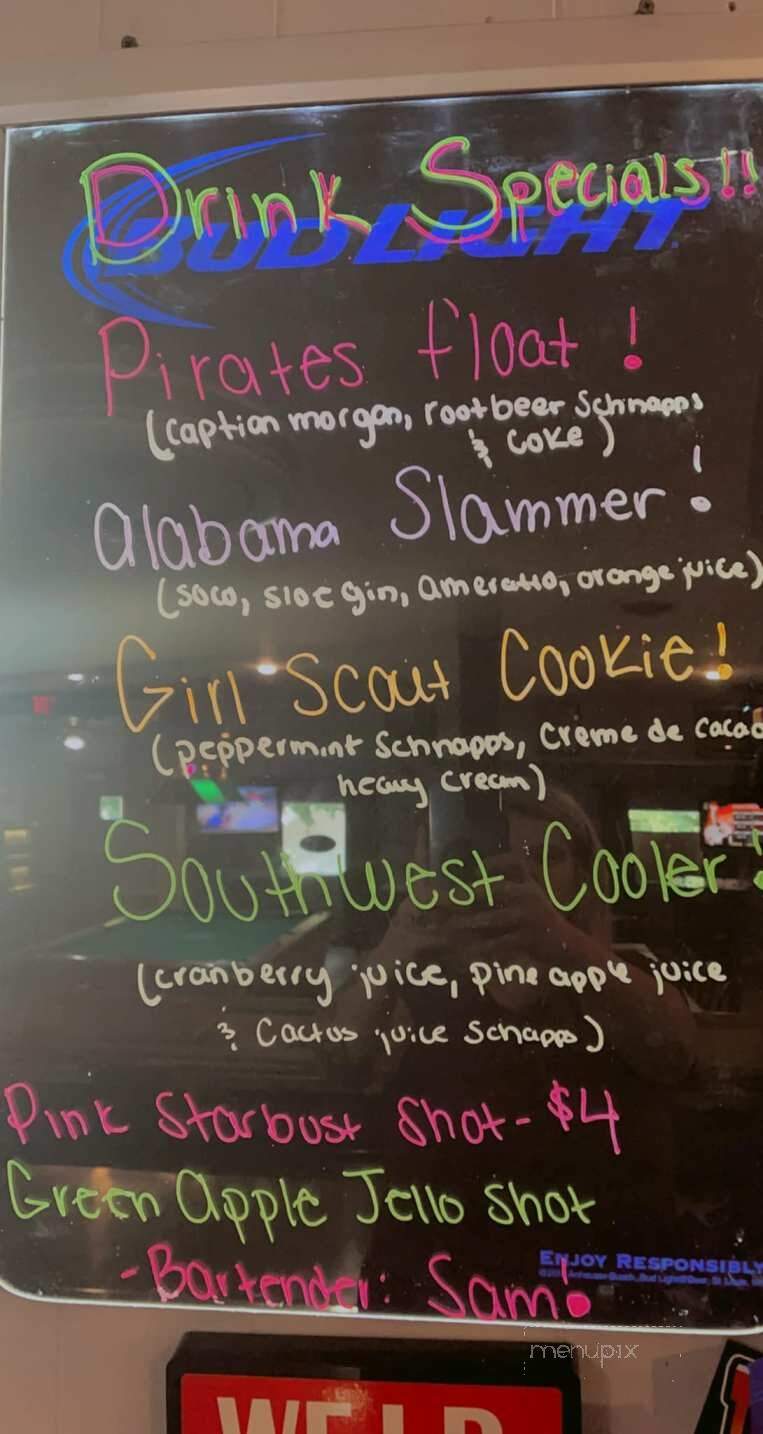 Drink Specials!!
BUD LIGHT
Pirates float!
(caption morgan, rootbeer Schnapps
& Coke)
Alabama Slammer!
(soco, sloe gin, ameratto, orange juice)
Girl Scout Cookie!
(peppermint Schnapps, Creme de cacao
heavy cream)
Southwest Cooler!
(cranberry juice, pineapple juice
& Cactus juice Schapps)
Pink Starbust Shot - $4
Green Apple Jello Shot
- Bartender: Sam!
ENJOY RESPONSIBLY
menupix